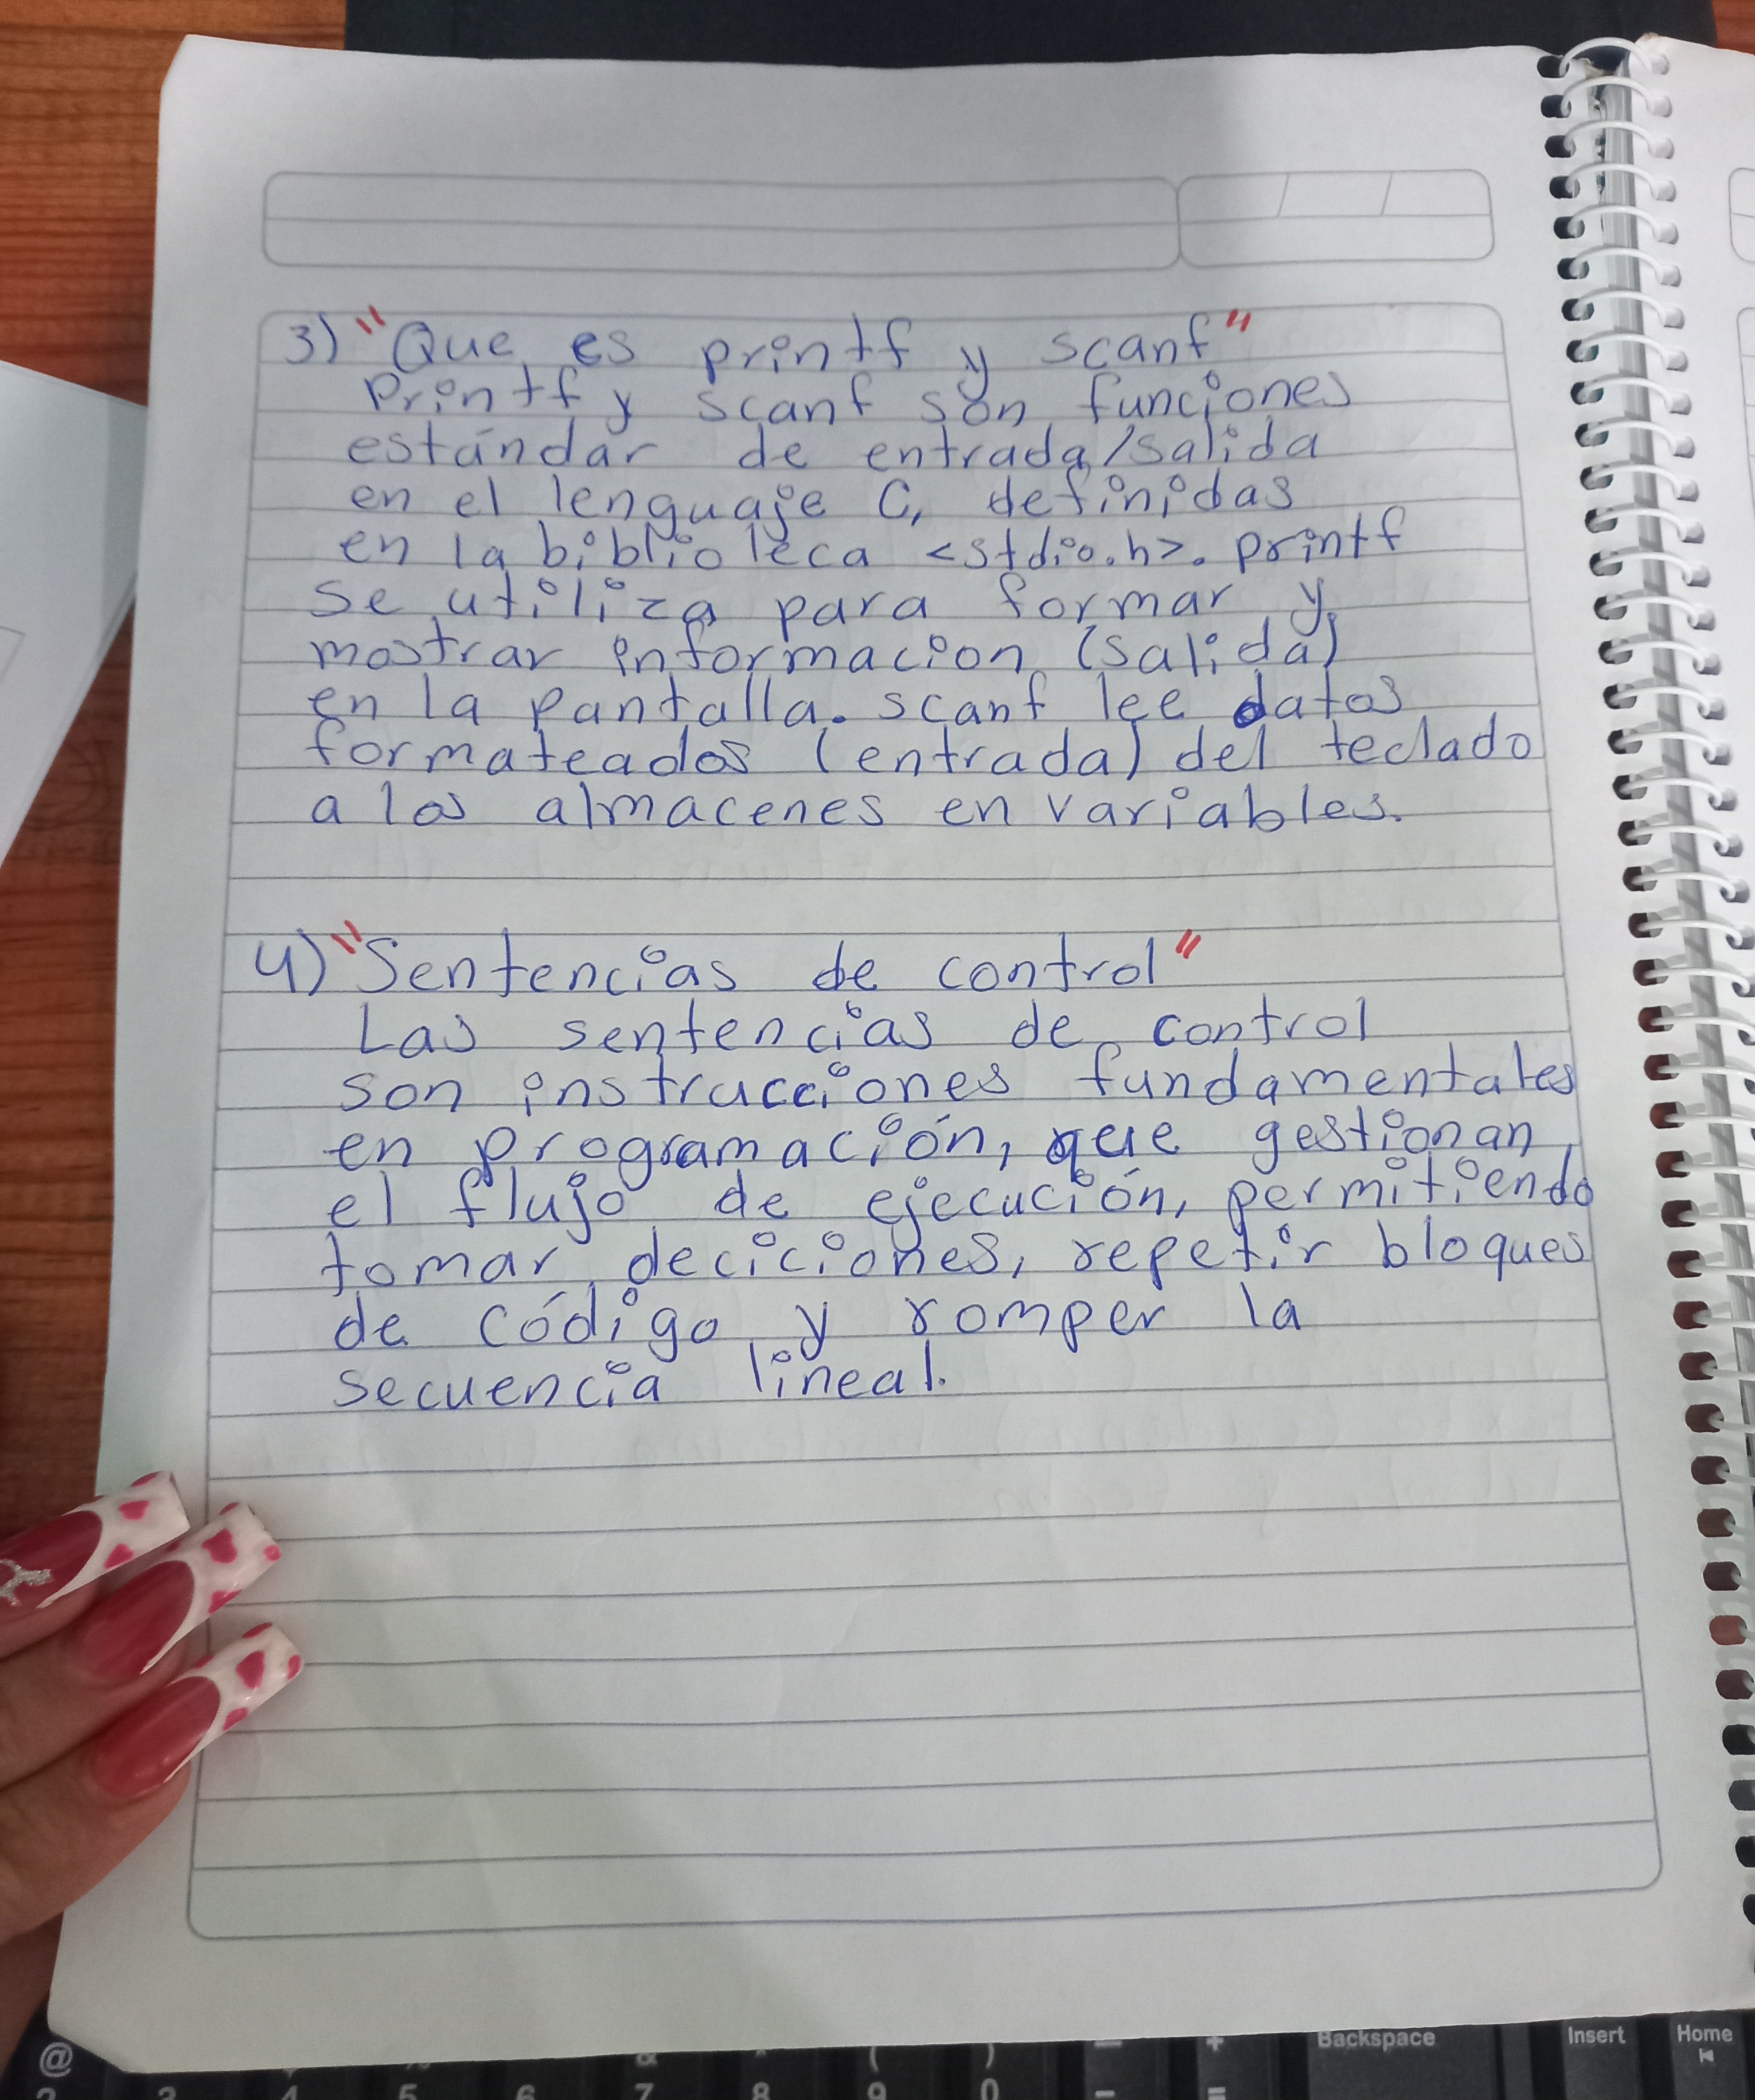 3) "Que es printf y scanf"
Printf y scanf son funciones
estándar de entrada/salida
en el lenguaje C, definidas
en la biblioteca <stdio.h>. printf
se utiliza para formar y
mostrar informacion (salida)
en la pantalla. scanf lee datos
formateados (entrada) del teclado
a los almacenes en variables.
4) "Sentencias de control"
Las sentencias de control
son instrucciones fundamentales
en programación, que gestionan
el flujo de ejecución, permitiendo
tomar deciciones, repetir bloques
de código y romper la
secuencia lineal.
Backspace Insert Home
@
2 3 4 5 6 7 8 9 0 - =